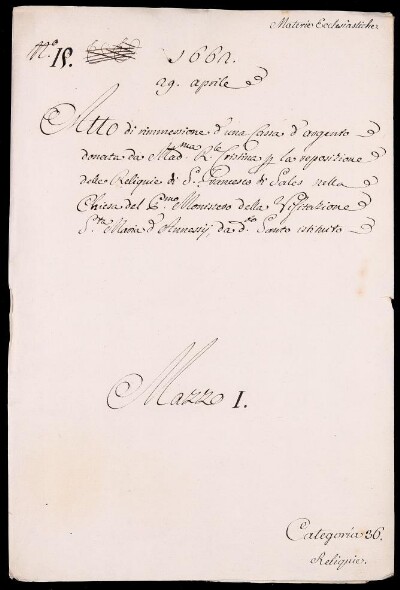 Materie Ecclesiastiche
N.º 15.
1662.
29. aprile
Atto di rimmessione d'una Cassa d'argento
donata da Mad.ma R.le Cristina p la reposizione
delle Reliquie di S. Francesco di Sales nella
Chiesa del Monistero della Visitazione
S.ta Maria d'Annessÿ, da d.º Santo istituito
Mazzo I.
Categoria 36.
Reliquie.